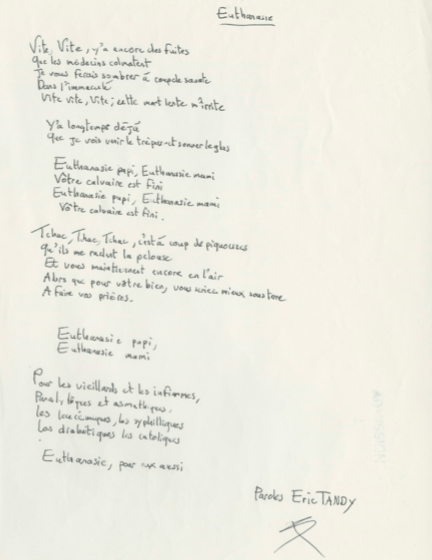 Euthanasie
Vite, Vite, y'a encore des fuites
Que les médecins colmatent
Je vous ferais sombrer à coup de savate
Dans l'immaculé
Vite vite, Vite, cette mort lente m'irrite
Y'a longtemps déjà
Que je vois venir le trépas et sonner le glas
Euthanasie papi, Euthanasie mami
Vôtre calvaire est fini
Euthanasie papi, Euthanasie mami
Vôtre calvaire est fini.
Tchac, Tchac, Tchac, c'est à coup de piqouses
Qu'ils me
Et vous maintiennent encore en l'air
Alors que pour vôtre bien, vous seriez mieux sous terre
A faire vos prières.
Euthanasie papi,
Euthanasie mami
Pour les vieillards et les infirmes,
et asmatiques,
les leucémiques, les syphilitiques
Les diabétiques les catoliques
Euthanasie, pour eux aussi
Paroles Eric TANDY